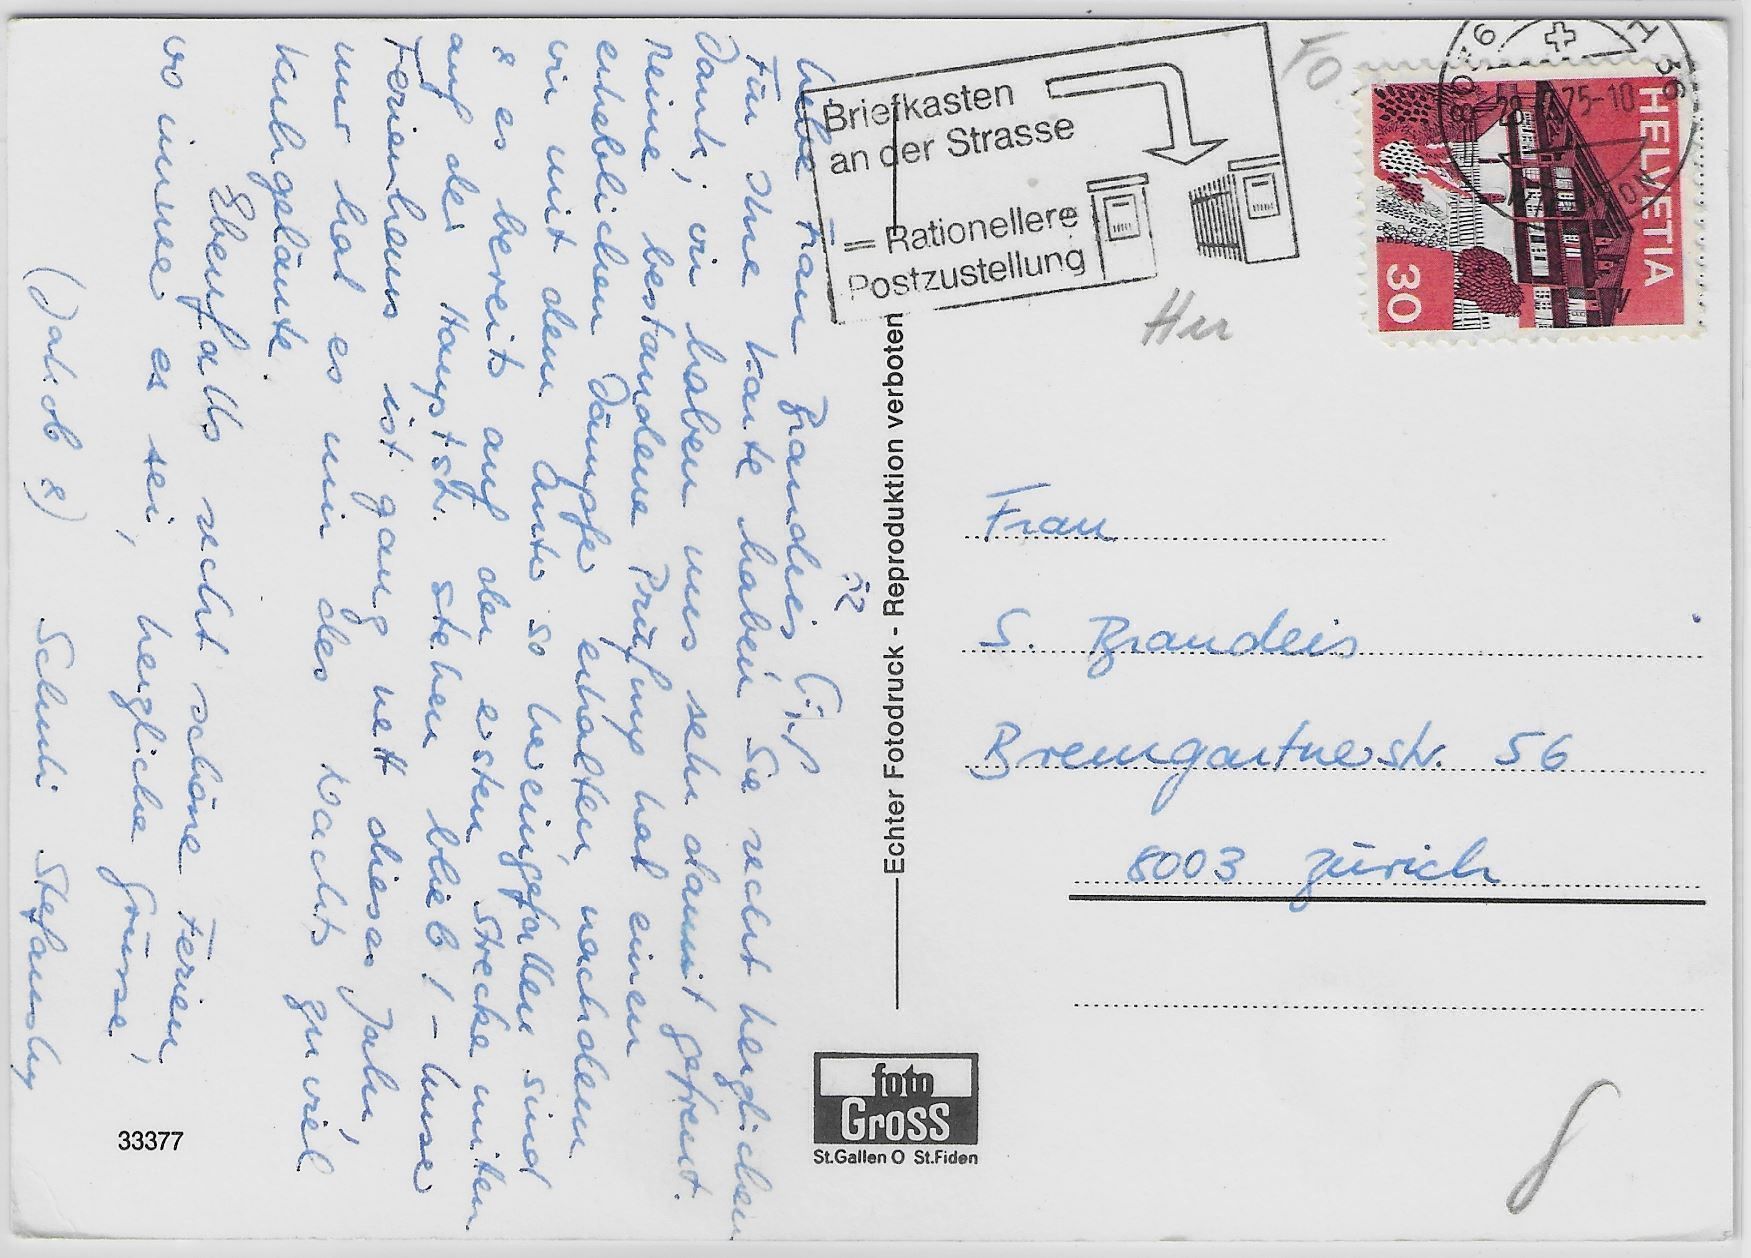 Liebe Frau Brandeis
Für Ihre Karte haben Sie recht herzlichen
Dank; wir haben uns sehr damit gefreut.
Meine bestandene Prüfung hat einen
erheblichen Dämpfer erhalten, nachdem
wir mit dem Auto so hereingefallen sind
& es bereits auf der ersten Strecke mitten
auf der Hauptstr. stehen blieb! - Unser
Ferienhaus ist ganz nett dieses Jahr,
nur hat es mir des Nachts zu viel
Kuhgeläute.
Ebenfalls recht schöne Ferien,
wo immer es sei, herzliche Grüsse
(Jakob &) Schuli Stefansky
33377
Briefkasten
an der Strasse
= Rationellere
Postzustellung
Echter Fotodruck - Reproduktion verboten
foto
Gross
St.Gallen O St.Fiden
HELVETIA
30
75-10
Frau
S. Brandeis
Bremgartnerstr. 56
8003 Zürich